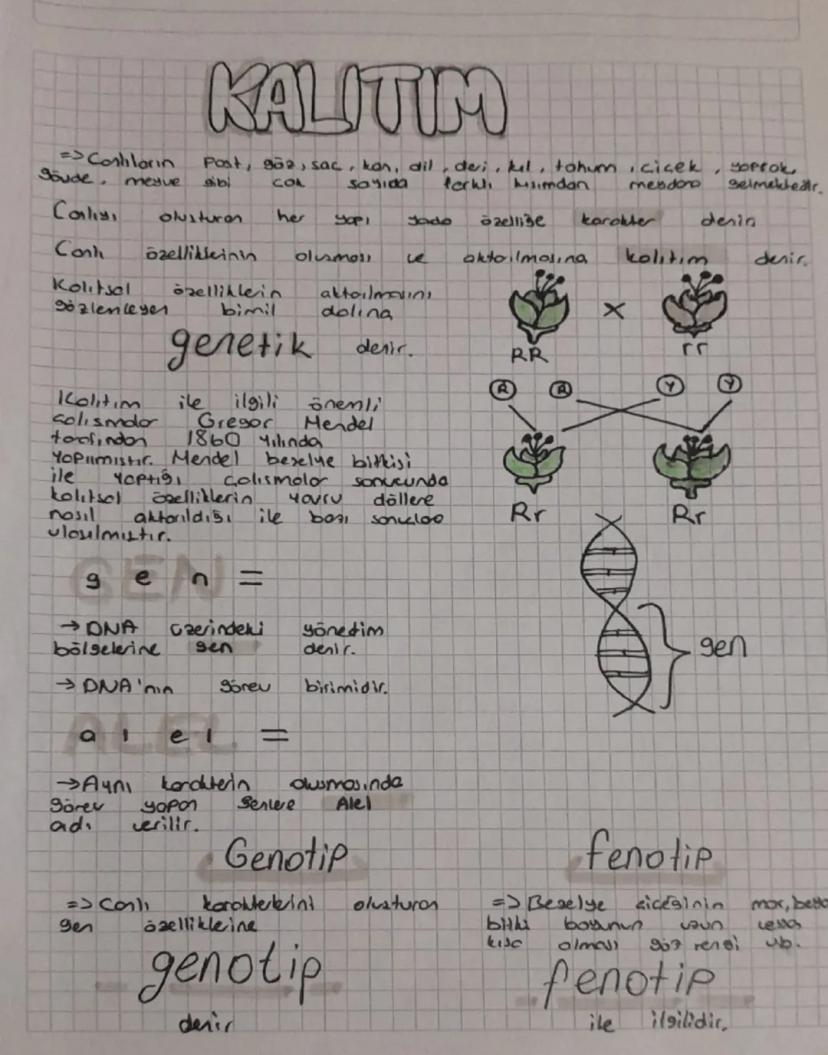 KALITIM
=> Canlıların Post, göz, sac, kan, dil, deri, kıl, tohum, cicek, yaprak,
gövde, meyve gibi cok sayıda farklı kısımdan meydana gelmektedir.
Canlıyı olusturan her yapı yada özelliğe karakter denir
Canlı özelliklerinin olusması ve aktarılmasına kalıtım denir.
Kalıtsal özelliklerin aktarılmasını
gözlemleyen bimil dalına
genetik denir.
RR x rr
R R Y Y
Rr Rr
Kalıtım ile ilgili önemli
calısmalar Gregor Mendel
tarafından 1860 yılında
yapılmıstır. Mendel bezelye bitkisi
ile yaptığı calısmalar sonucunda
kalıtsal özelliklerin yavru döllere
nasıl aktarıldığı ile bazı
ulasılmıstır.
GEN
gen =
→ DNA üzerindeki yönetim
bölgelerine gen denir.
→ DNA'nın görev birimidir.
gen
ALEL
alel =
→ Aynı karakterin olusmasında
görev yapan genlere Alel
adı verilir.
Genotip
=> Canlı karakterlerini olusturan
gen özelliklerine
genotip
denir
fenotip
=> Bezelye ciceğinin mor, beyaz
bitki boyunun uzun veya
kısa olması göz rengi vb.
fenotip
ile ilgilidir.